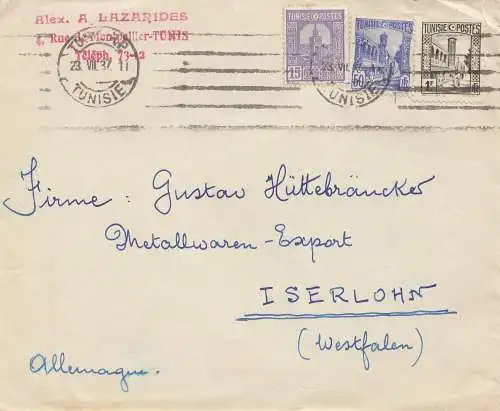 Alex. A. LAZARIDES
4, Rue de Montpellier-TUNIS
Téléph. 73-2
TUNIS R.P.
23. VII. 37. 11
TUNISIE
TUNISIE POSTES
15
TUNISIE POSTES
50
TUNISIE POSTES
1F
TUNISIE
Firme : Gustav Hüttebräucker
Metallwaren-Export
ISERLOHN
(Westfalen)
Allemagne.